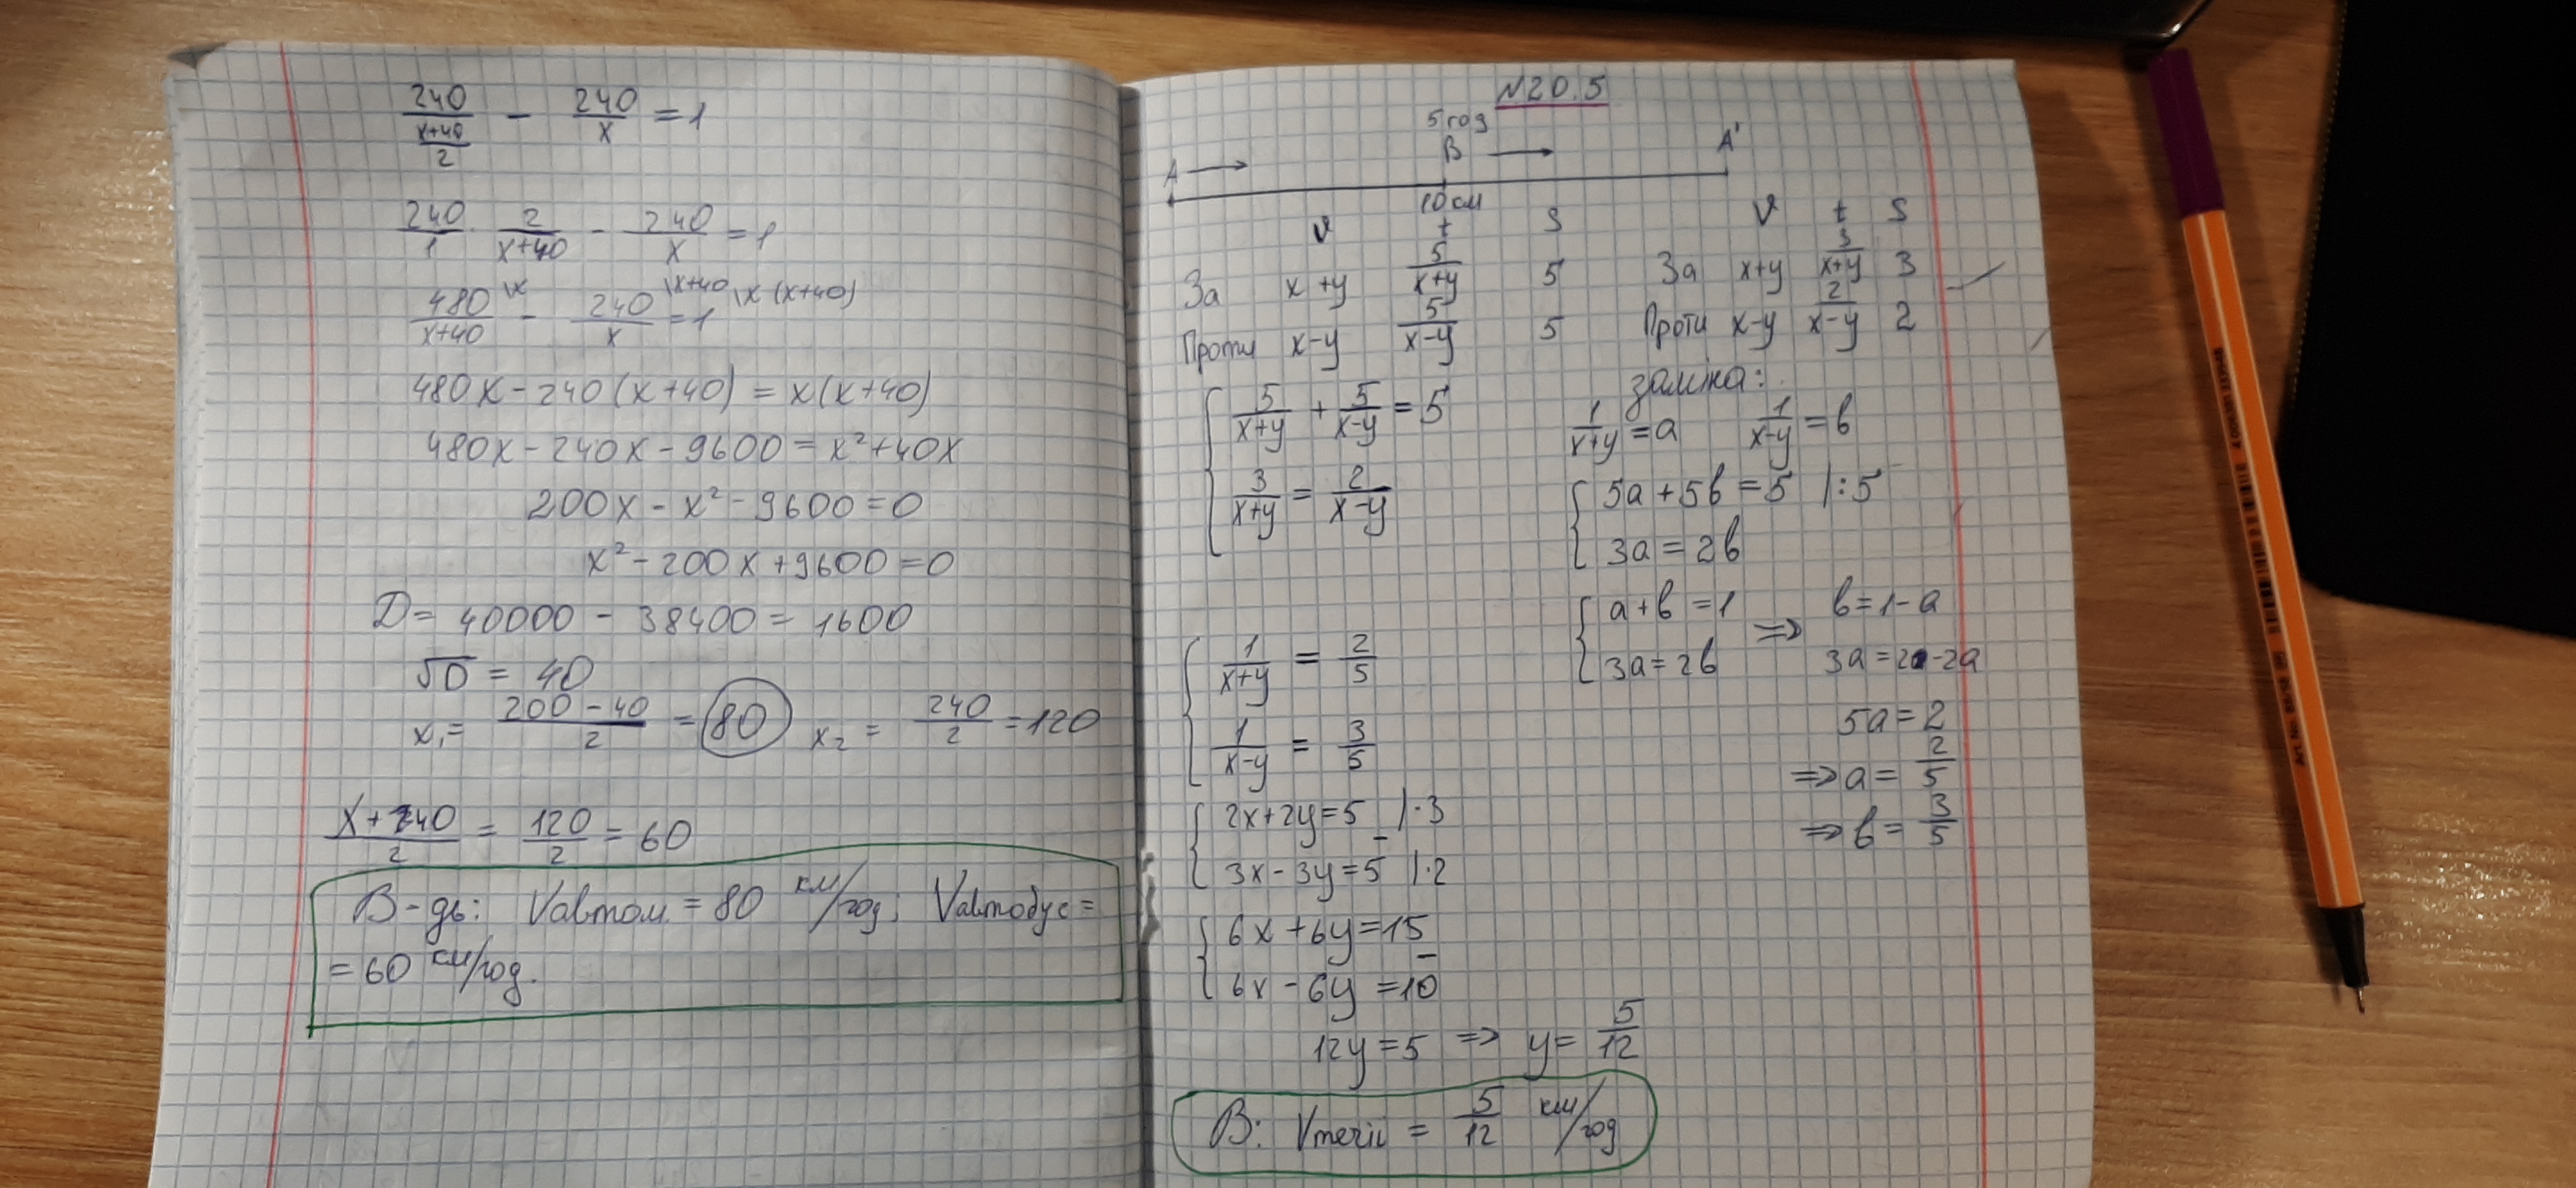 240/((x+40)/2) - 240/x = 1
240/1 · 2/(x+40) - 240/x = 1
480/(x+40) \x - 240/x \x+40 = 1 \x(x+40)
480x - 240(x+40) = x(x+40)
480x - 240x - 9600 = x² + 40x
200x - x² - 9600 = 0
x² - 200x + 9600 = 0
D = 40000 - 38400 = 1600
√D = 40
x₁ = (200 - 40)/2 = 80 x₂ = 240/2 = 120
(x+40)/2 = 120/2 = 60
В-дь: Vавтом. = 80 км/год; Vавтобус =
= 60 км/год.
№20.5
5 год
A → B → A'
10 км
v t S
За x+y 5/(x+y) 5
Проти x-y 5/(x-y) 5
v t S
За x+y 3/(x+y) 3
Проти x-y 2/(x-y) 2
{ 5/(x+y) + 5/(x-y) = 5
3/(x+y) = 2/(x-y)
заміна:
1/(x+y) = a 1/(x-y) = b
{ 5a + 5b = 5 |:5
3a = 2b
{ a + b = 1 ⇒ b = 1 - a
3a = 2b 3a = 2 - 2a
5a = 2
⇒ a = 2/5
⇒ b = 3/5
{ 1/(x+y) = 2/5
1/(x-y) = 3/5
{ 2x + 2y = 5 |·3
-
3x - 3y = 5 |·2
{ 6x + 6y = 15
-
6x - 6y = 10
12y = 5 ⇒ y = 5/12
В: Vтечії = 5/12 км/год